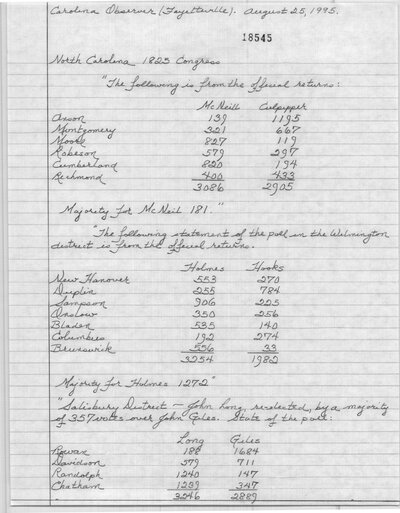 Carolina Observer (Fayetteville). August 25, 1995.
18545
North Carolina 1825 Congress
"The following is from the official returns:
McNeill Culpepper
Anson 139 1195
Montgomery 321 667
Moore 827 119
Robeson 579 297
Cumberland 820 194
Richmond 400 433
3086 2905
Majority for McNeil 181."
"The following statement of the poll in the Wilmington
district is from the official returns.
Holmes Hooks
New Hanover 553 270
Duplin 255 784
Sampson 906 225
Onslow 350 256
Bladen 535 140
Columbus 192 274
Brunswick 33
3254 1982
Majority for Holmes 1272"
"Salisbury District — John Long, re-elected, by a majority
of 357 votes over John Giles. State of the poll:
Long Giles
Rowan 188 1684
Davidson 579 711
Randolph 1240 147
Chatham 1239 347
3246 2889